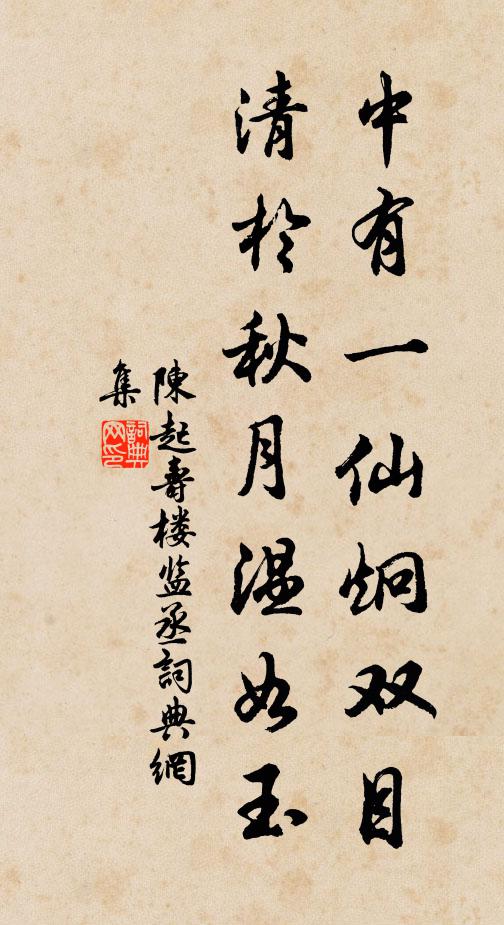 中有一仙炯双目
清於秋月温如玉
陳起壽楼监丞詞典網
集
詞典
网印